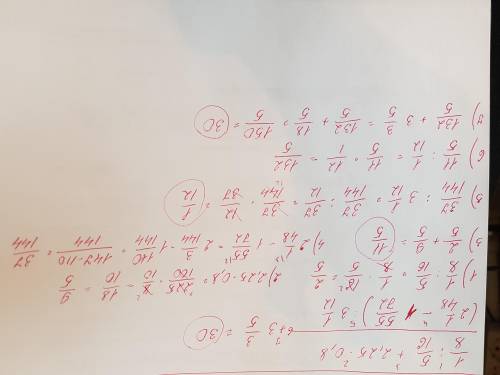 1/8 : 5/16 + 2,25 · 0,8
(2 1/48 - 1 55/72) : 3 1/12
+ 3 3/5 = 30
1) 1/8 : 5/16 = 1/8 · 16/5 = 2/5
2) 2,25 · 0,8 = 225/100 · 8/10 = 18/10 = 9/5
3) 2/5 + 9/5 = 11/5
4) 2 1/48 - 1 55/72 = 2 3/144 - 1 110/144 = 147-110/144 = 37/144
5) 37/144 : 3 1/12 = 37/144 : 37/12 = 37/144 · 12/37 = 1/12
6) 11/5 : 1/12 = 11/5 · 12/1 = 132/5
7) 132/5 + 3 3/5 = 132/5 + 18/5 = 150/5 = 30